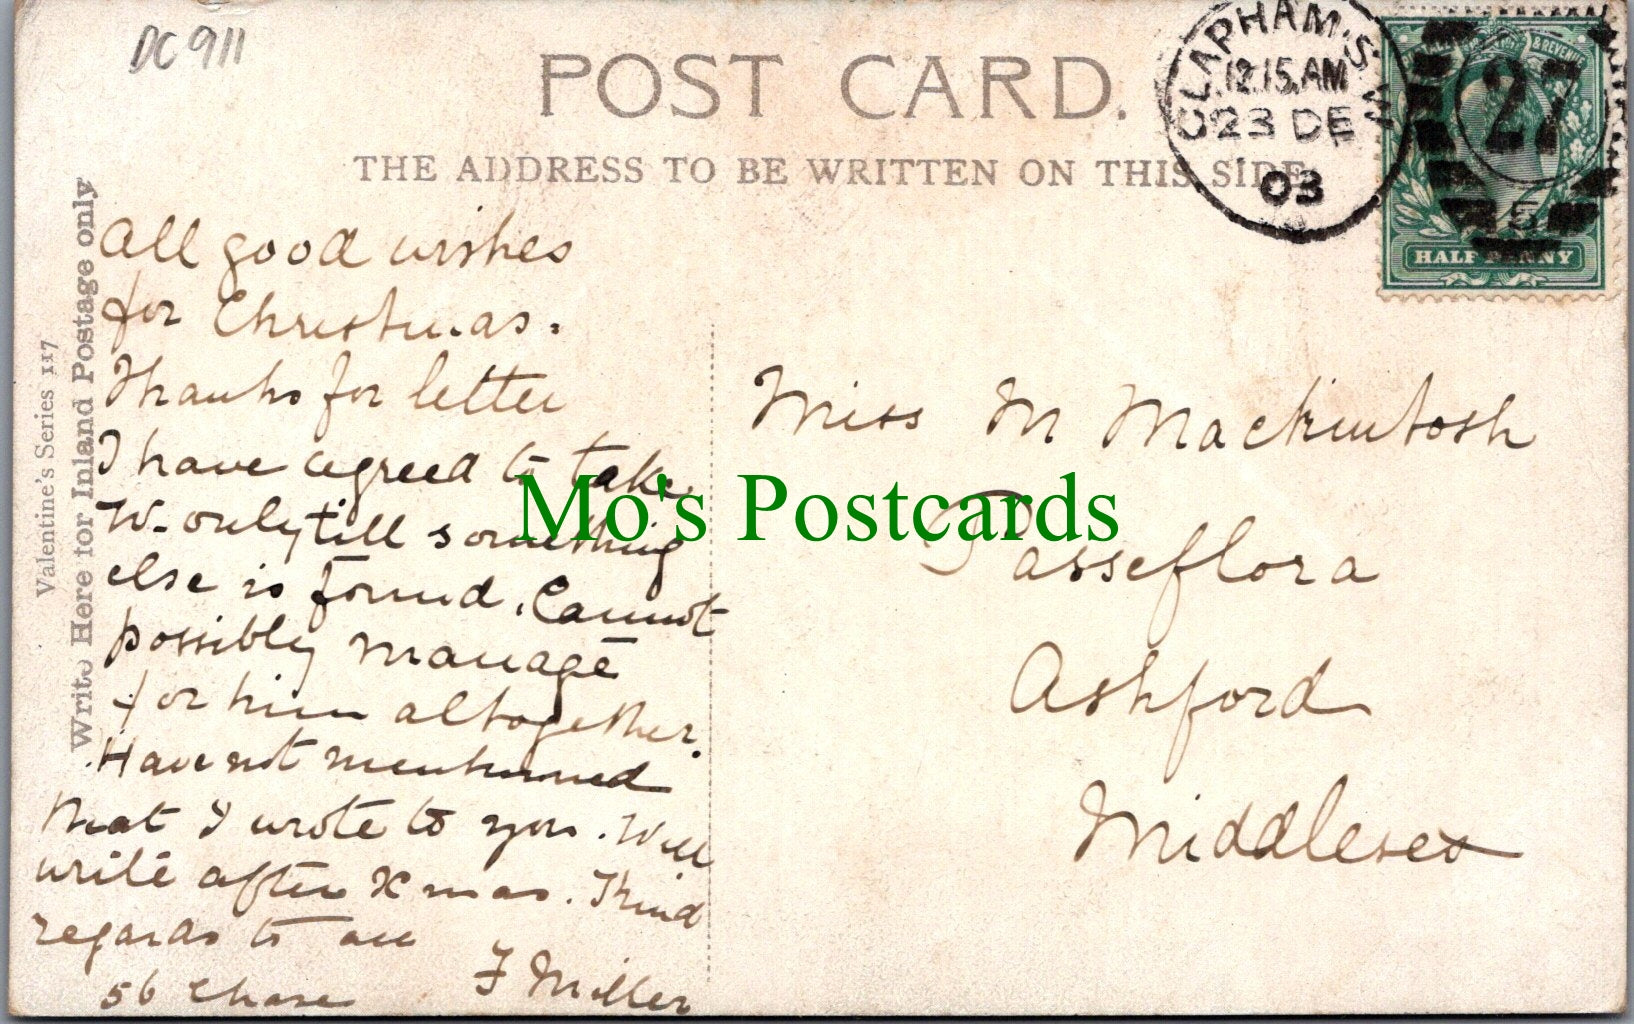 DC 911
POST CARD.
THE ADDRESS TO BE WRITTEN ON THIS SIDE.
CLAPHAM.S.W
12.15.AM
23 DE
03
27
15
& REVENUE
HALF PENNY
Valentine's Series 117
Write Here for Inland Postage only
All good wishes
for Christmas.
Thanks for letter
I have agreed to take
W- only till something
else is found. Cannot
possibly manage
for him altogether.
Have not mentioned
that I wrote to you. Will
write after Xmas. Kind
regards to all
F Miller
56 Chase
Miss M Mackintosh
Passeflora
Ashford
Middlesex
Mo's Postcards